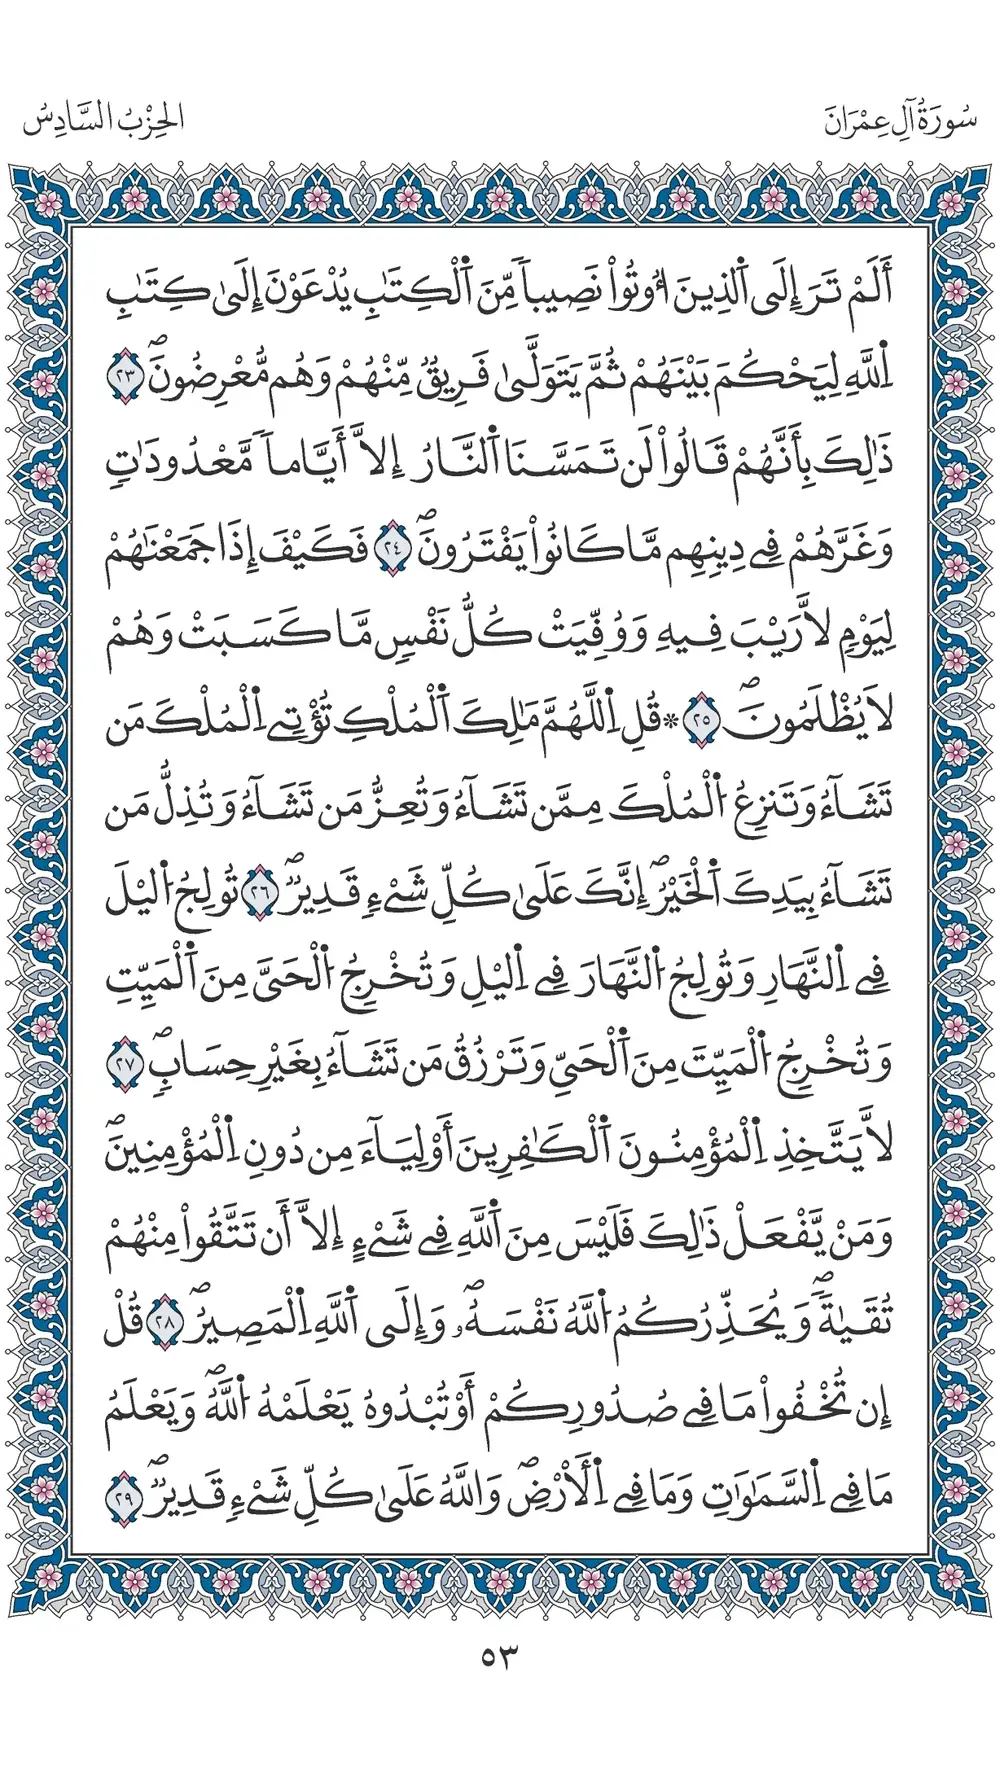 سُورَةُ آلِ عِمْرَانَ
الحِزْبُ السَّادِسُ
أَلَمْ تَرَ إِلَى اَ۬لذِينَ أُوتُواْ نَصِيباٗ مِّنَ اَ۬لْكِتَٰبِ يُدْعَوْنَ إِلَىٰ كِتَٰبِ
اِ۬للَّهِ لِيَحْكُمَ بَيْنَهُمْ ثُمَّ يَتَوَلَّىٰ فَرِيقٞ مِّنْهُمْ وَهُم مُّعْرِضُونَۖ ٢٣
ذَٰلِكَ بِأَنَّهُمْ قَالُواْ لَن تَمَسَّنَا اَ۬لنَّارُ إِلَّآ أَيَّاماٗ مَّعْدُودَٰتٖ
وَغَرَّهُمْ فِے دِينِهِم مَّا كَانُواْ يَفْتَرُونَۖ ٢٤ فَكَيْفَ إِذَا جَمَعْنَٰهُمْ
لِيَوْمٖ لَّا رَيْبَ فِيهِ وَوُفِّيَتْ كُلُّ نَفْسٖ مَّا كَسَبَتْ وَهُمْ
لَا يُظْلَمُونَۖ ٢٥ ۞ قُلِ اِ۬للَّهُمَّ مَٰلِكَ اَ۬لْمُلْكِ تُؤْتِے اِ۬لْمُلْكَ مَن
تَشَآءُ وَتَنزِعُ اُ۬لْمُلْكَ مِمَّن تَشَآءُ وَتُعِزُّ مَن تَشَآءُ وَتُذِلُّ مَن
تَشَآءُ بِيَدِكَ اَ۬لْخَيْرُۖ إِنَّكَ عَلَىٰ كُلِّ شَےْءٖ قَدِيرٞۖ ٢٦ تُولِجُ اُ۬ليْلَ
فِے اِ۬لنَّهَارِ وَتُولِجُ اُ۬لنَّهَارَ فِے اِ۬ليْلِ وَتُخْرِجُ اُ۬لْحَيَّ مِنَ اَ۬لْمَيِّتِ
وَتُخْرِجُ اُ۬لْمَيِّتَ مِنَ اَ۬لْحَيِّ وَتَرْزُقُ مَن تَشَآءُ بِغَيْرِ حِسَابٖۖ ٢٧
لَّا يَتَّخِذِ اِ۬لْمُؤْمِنُونَ اَ۬لْكَٰفِرِينَ أَوْلِيَآءَ مِن دُونِ اِ۬لْمُؤْمِنِينَۖ
وَمَنْ يَّفْعَلْ ذَٰلِكَ فَلَيْسَ مِنَ اَ۬للَّهِ فِے شَےْءٍ إِلَّآ أَن تَتَّقُواْ مِنْهُمْ
تُقَيٰةٗۖ وَيُحَذِّرُكُمُ اُ۬للَّهُ نَفْسَهُۥۖ وَإِلَى اَ۬للَّهِ اِ۬لْمَصِيرُۖ ٢٨ قُلْ
إِن تُخْفُواْ مَا فِے صُدُورِكُمْ أَوْ تُبْدُوهُ يَعْلَمْهُ اُ۬للَّهُۖ وَيَعْلَمُ
مَا فِے اِ۬لسَّمَٰوَٰتِ وَمَا فِے اِ۬لَارْضِۖ وَاللَّهُ عَلَىٰ كُلِّ شَےْءٖ قَدِيرٞۖ ٢٩
٥٣